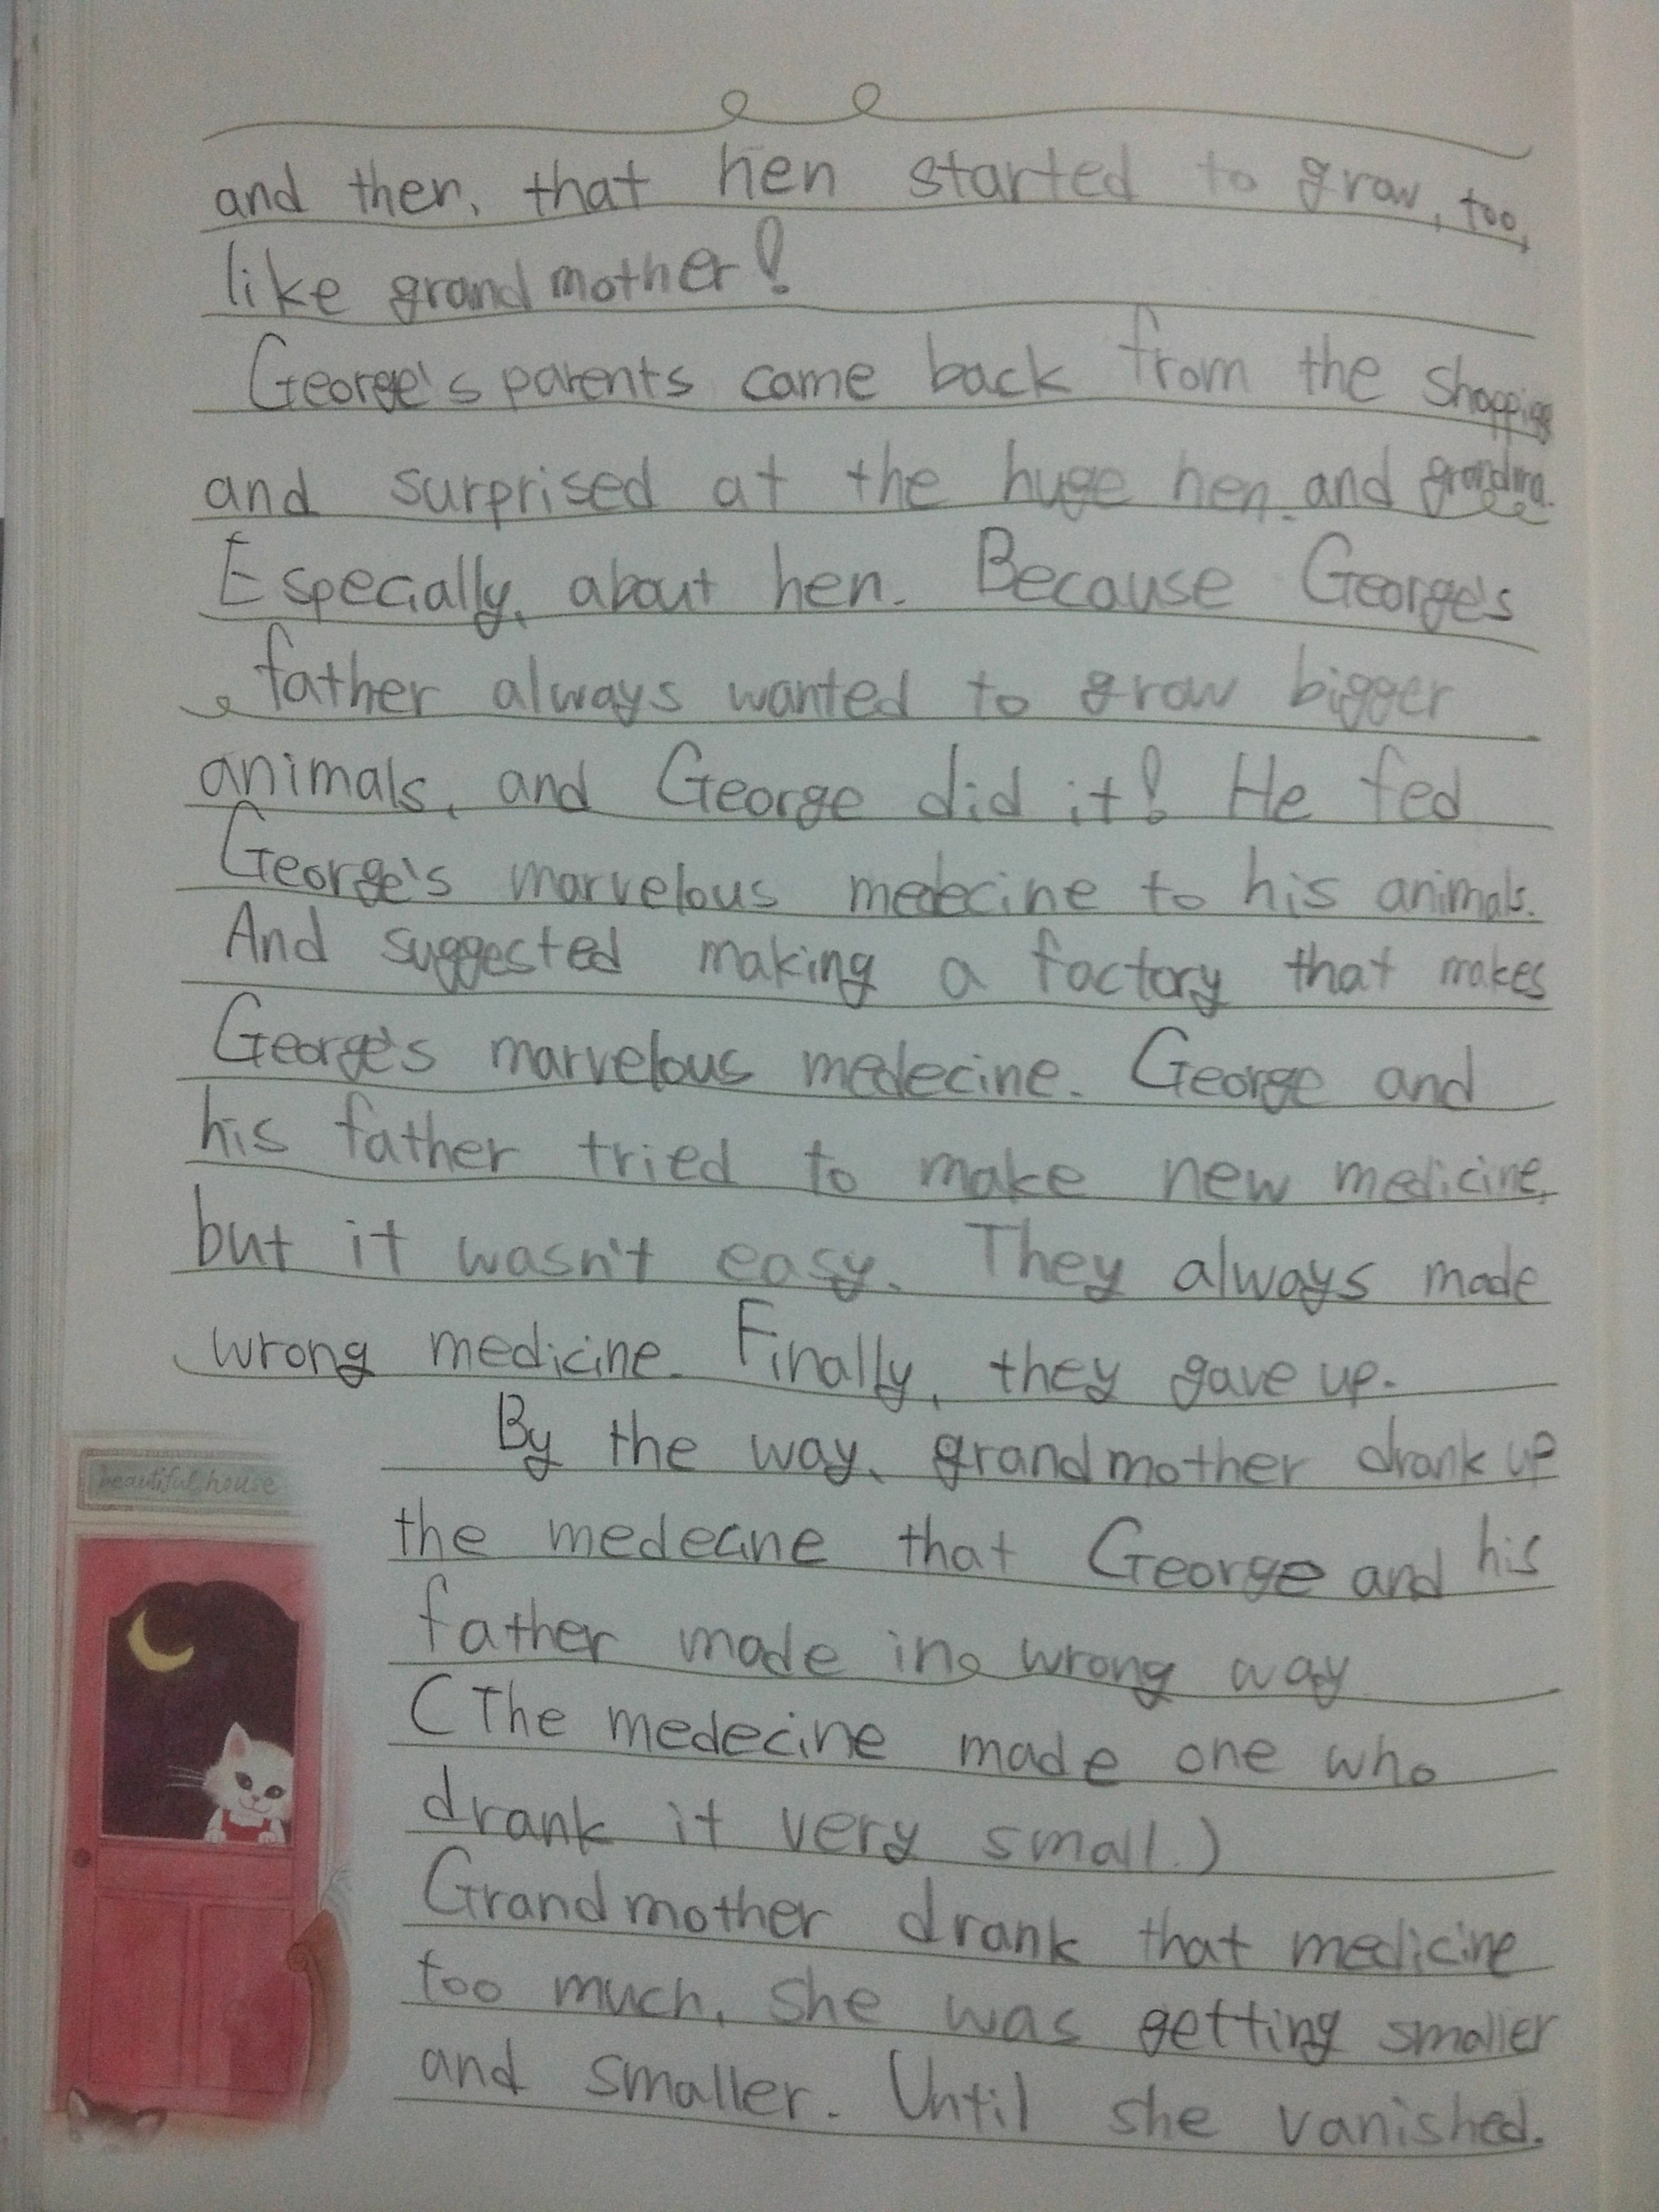 and then, that hen started to grow, too,
like grandmother!
George's parents came back from the shopping
and surprised at the huge hen and grandma.
Especially, about hen. Because George's
father always wanted to grow bigger
animals, and George did it! He fed
George's marvelous medecine to his animals.
And suggested making a factory that makes
George's marvelous medecine. George and
his father tried to make new medicine,
but it wasn't easy. They always made
wrong medicine. Finally, they gave up.
By the way, grandmother drank up
the medecine that George and his
father made in wrong way
(The medecine made one who
drank it very small.)
Grandmother drank that medicine
too much, she was getting smaller
and smaller. Until she vanished.
beautiful house